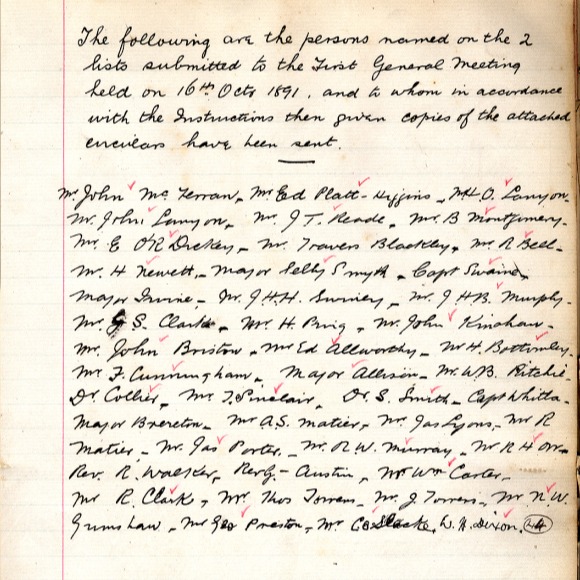 The following are the persons named on the 2
lists submitted to the First General Meeting
held on 16th Octr 1891, and to whom in accordance
with the Instructions then given copies of the attached
circulars have been sent.
Mr John Mc Ferran, Mr Ed Platt-Higgins, Mr H.O. Lanyon
Mr. John Lanyon, Mr. J T. Reade, Mr. B Montgomery
Mr. E O'R Dickey, Mr. Travers Blackley, Mr. R Bell
Mr. H Newett, Major Selby Smyth, Capt Swaine
Major Irvine, Mr. J.H.H. Mr. J H B. Murphy
Mr. G S. Clarke, Mr. H. Mr. John Kinahan
Mr. John Bristow, Mr Ed Allworthy, Mr H. Bottomley
Mr F. Cunningham, Major Allison, Mr. W.B. Ritchie
Dr. Collier, Mr T. Sinclair, Dr. S. Smith, Capt Whitla
Major Brereton, Mr A.S. Matier, Mr. Jas Lyons, Mr R
Matier, Mr. Jas Porter, Mr. R.W. Murray, Mr R H Orr
Rev. R. Walker, Austin, Mr Wm Carter
Mr R. Clark, Mr. Thos Torrens, Mr. J. Torrens, Mr. N.W.
Grimshaw, Mr Geo Preston, Mr W.H. Dixon.